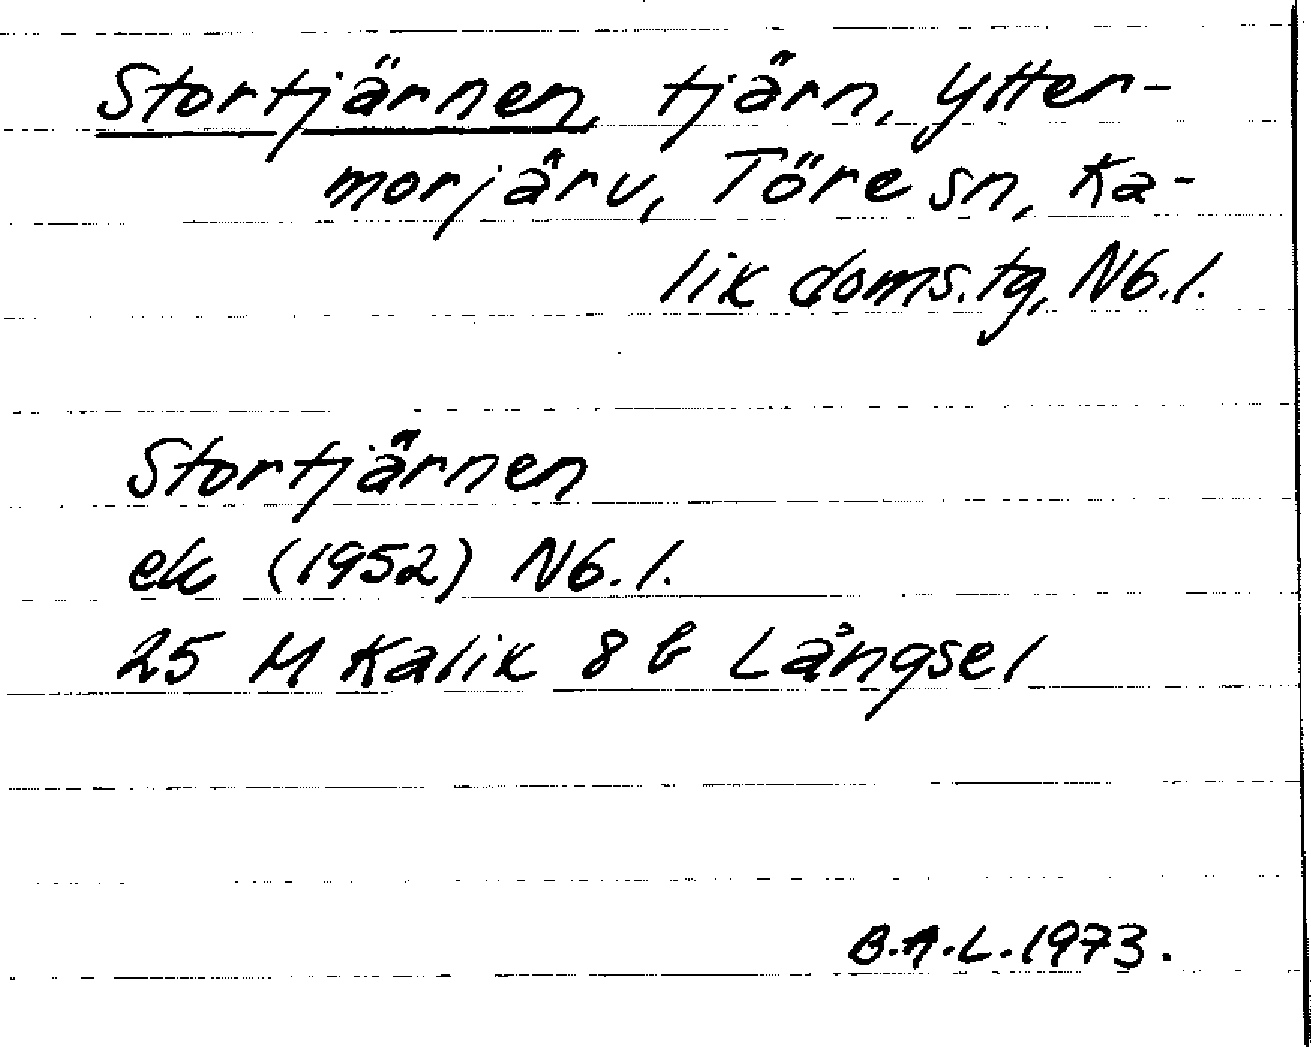 Stortjärnen, tjärn, Ytter-
morjärv, Töre sn, Ka-
lik doms.tg, Nb.l.
Stortjärnen
ek (1952) Nb.l.
25 M Kalix 8 b Långsel
B.A.L. 1973.